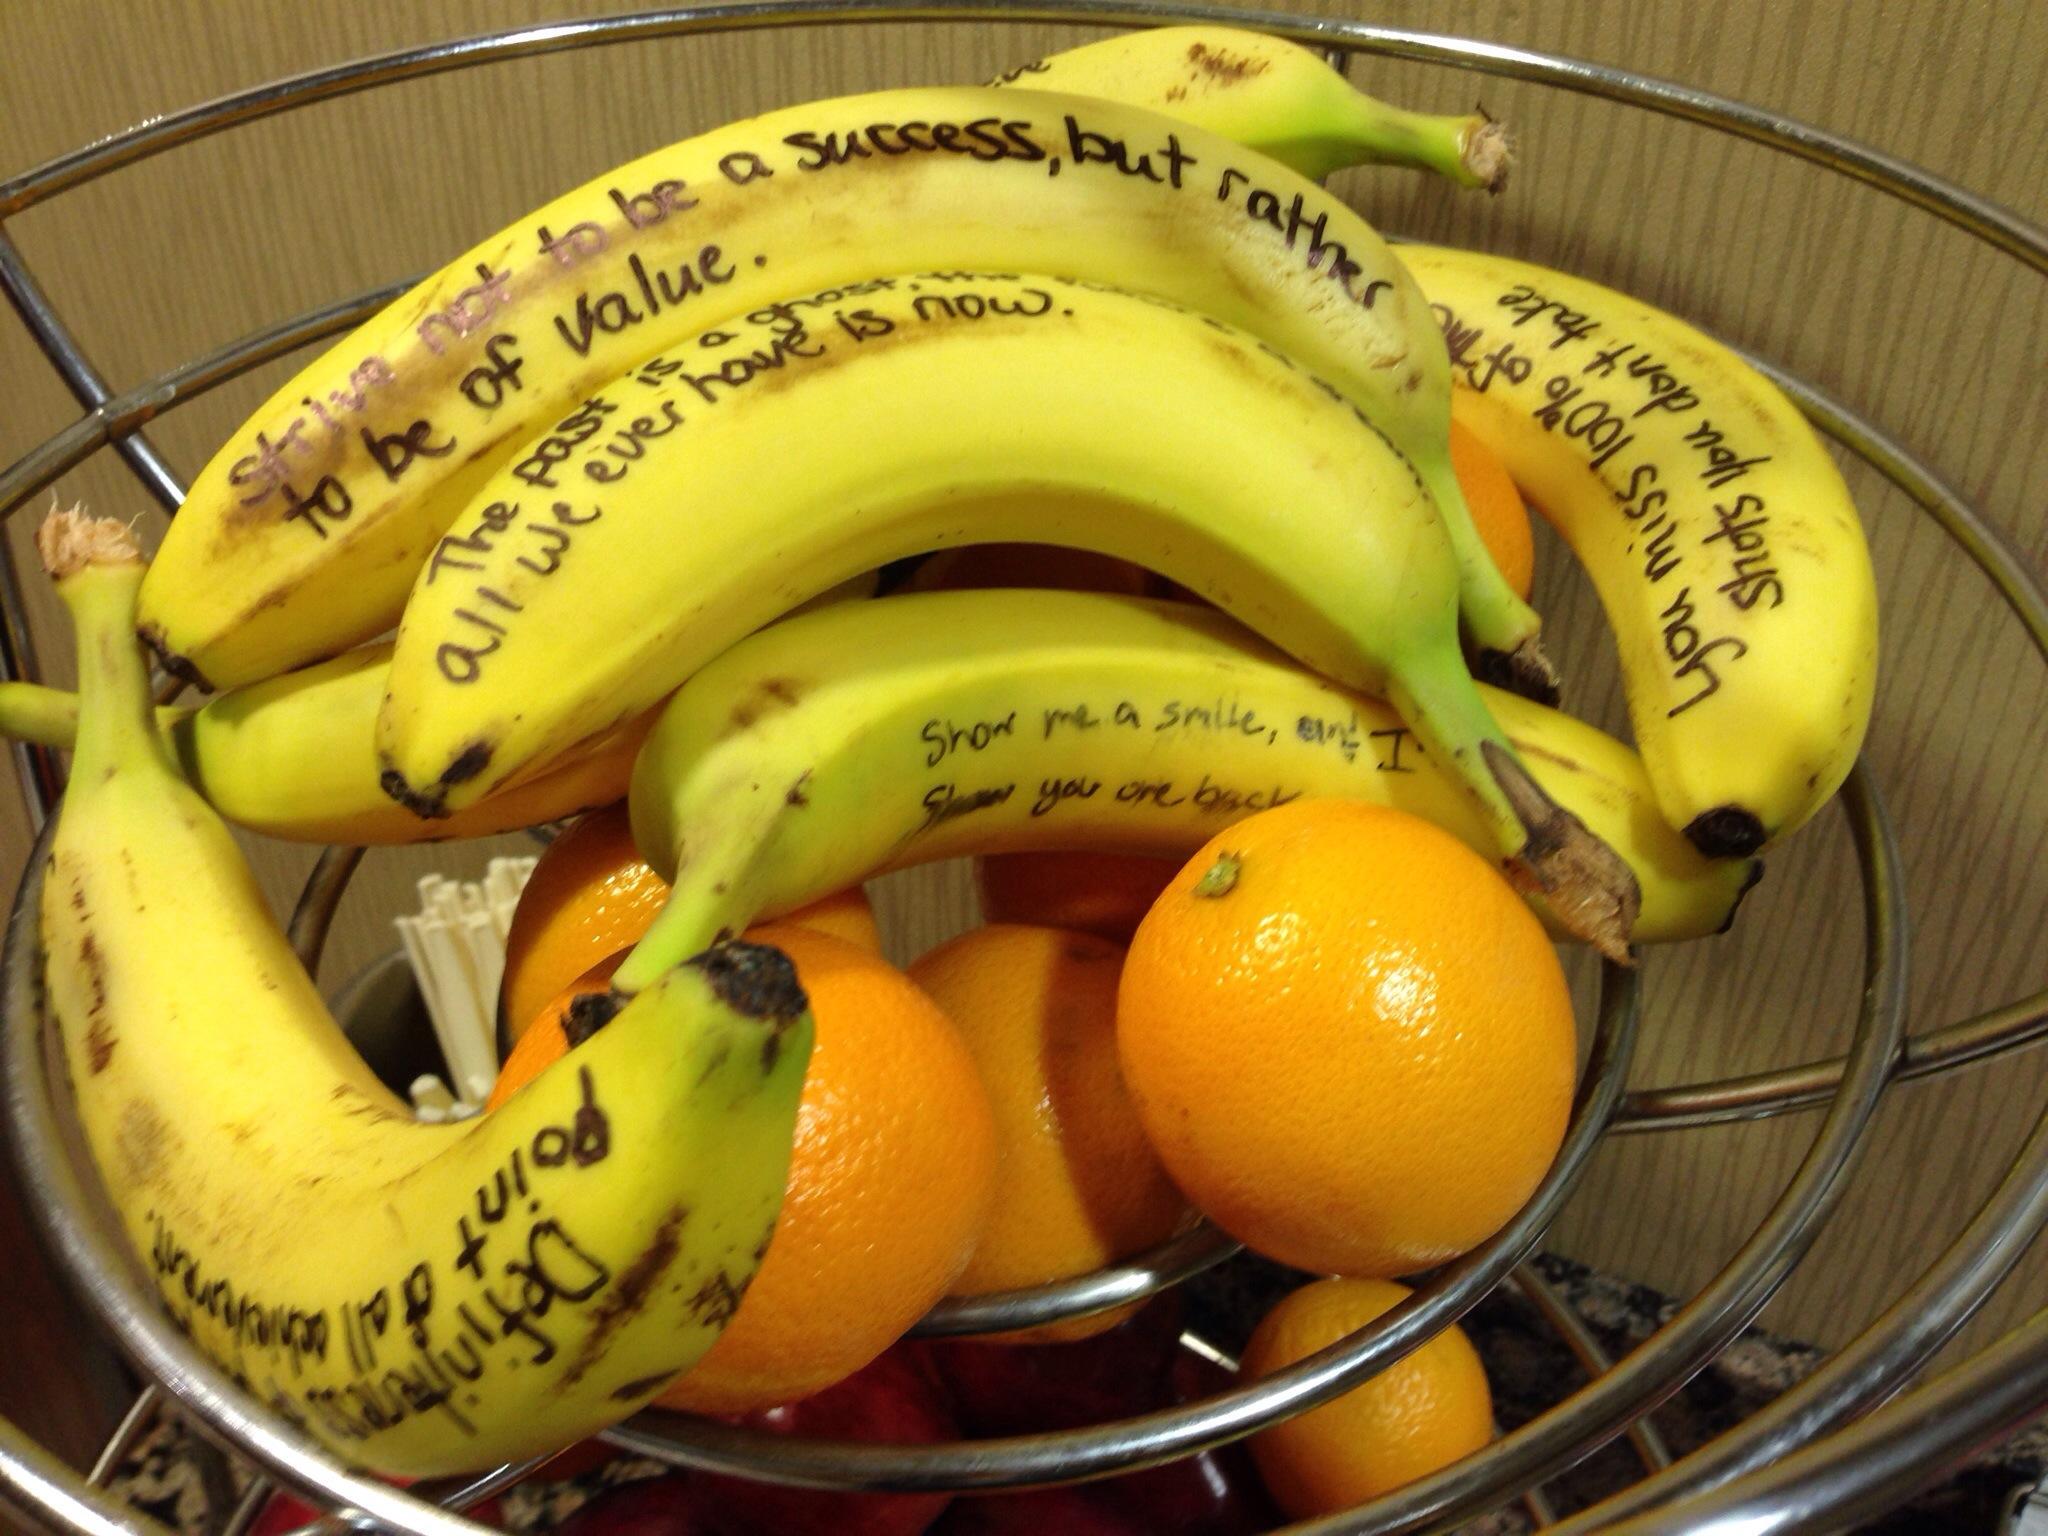 Strive not to be a success, but rather
to be of value.
The past is a ghost, the
all we ever have is now.
You miss 100% of the
shots you don't take
Show me a smile, and I
Show you one back
Definiteness
point of all achievement.